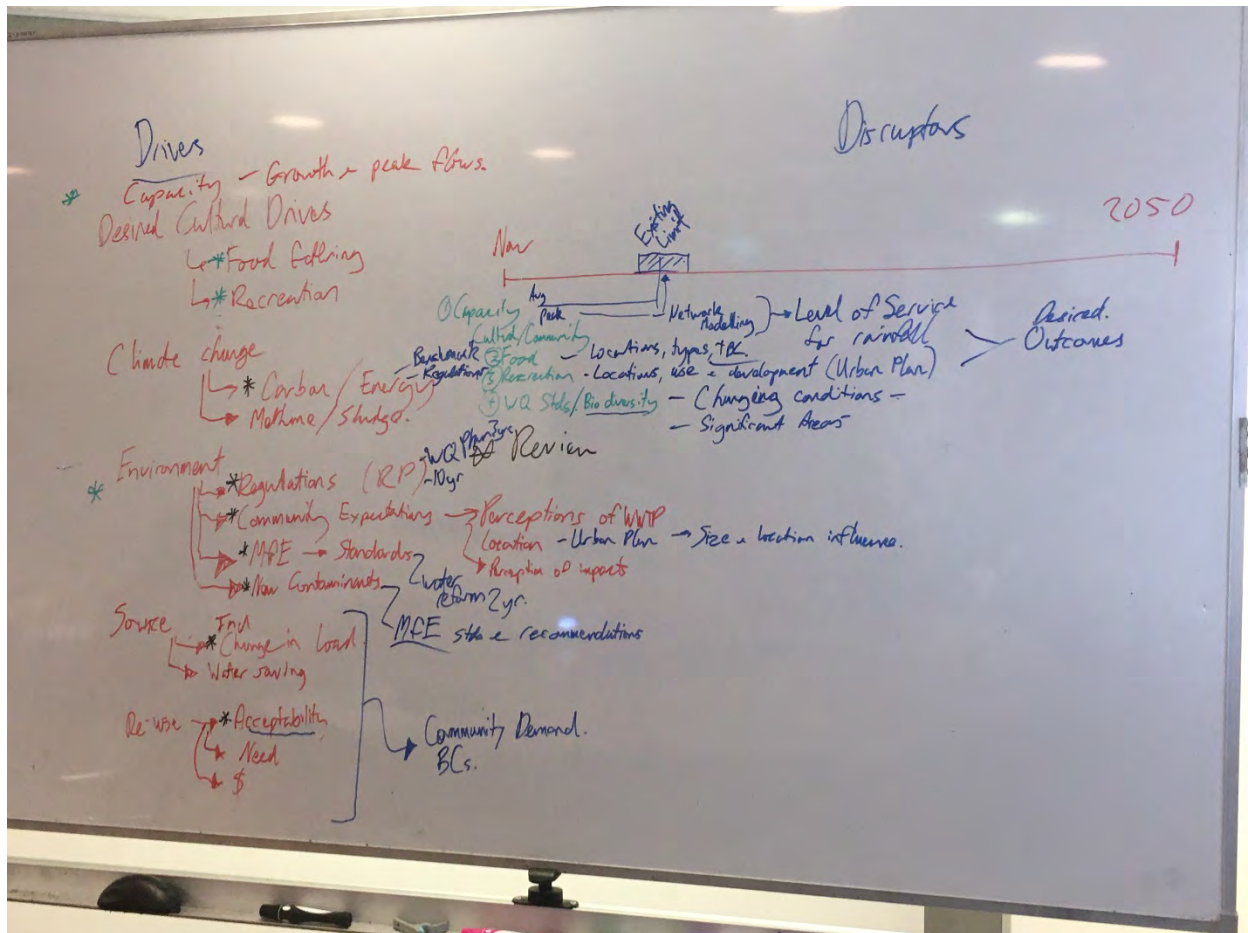 Drives
Disruptors
* Capacity - Growth & peak flows.
Desired Cultural Drives
* Food Gathering
* Recreation
Now
Existing Limit
2050
① Capacity
Avg
Peak
Network Modelling
Level of Service for rainfall
Desired Outcomes
Cultural/Community
② Food - Locations, types, + BC.
③ Recreation - Locations, use & development (Urban Plan)
④ WQ Stds/Biodiversity - Changing conditions -
- Significant Areas
Climate change
* Carbon/Energy
- Benchmark
- Regulations
Methane/Sludge.
* Environment
* Regulations (RP)
- WQ Plan 3yrs
- 10yr
Review
* Community Expectations
Perceptions of WWTP
Location - Urban Plan → Size & location influence.
Perception of impacts
* MFE → Standards
* New Contaminants
water reform 2yr.
MFE stds & recommendations
Source
Ind
* Change in Load
Water saving
Re-use
* Acceptability
Need
$
Community Demand.
BCs.